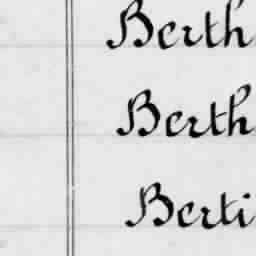 Berth
Berth
Berti